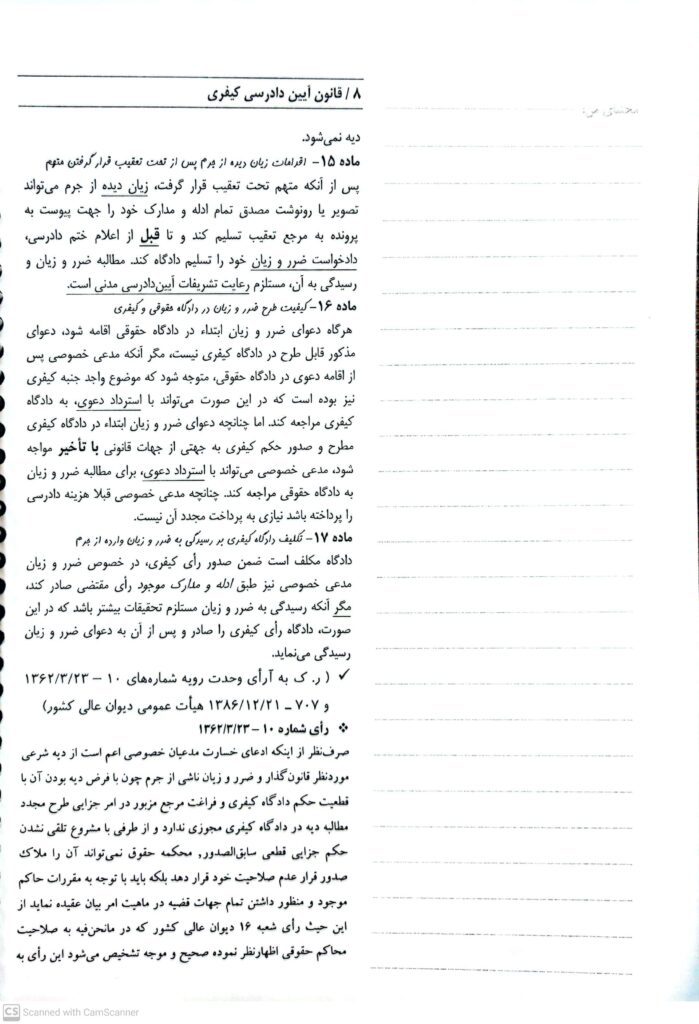 ۸ / قانون آیین دادرسی کیفری
دیه نمی‌شود.
ماده ۱۵- اقدامات زیان دیده از جرم پس از تحت تعقیب قرار گرفتن متهم
پس از آنکه متهم تحت تعقیب قرار گرفت، زیان دیده از جرم می‌تواند
تصویر یا رونوشت مصدق تمام ادله و مدارک خود را جهت پیوست به
پرونده به مرجع تعقیب تسلیم کند و تا قبل از اعلام ختم دادرسی،
دادخواست ضرر و زیان خود را تسلیم دادگاه کند. مطالبه ضرر و زیان و
رسیدگی به آن، مستلزم رعایت تشریفات آیین‌دادرسی مدنی است.
ماده ۱۶- کیفیت طرح ضرر و زیان در دادگاه حقوقی و کیفری
هرگاه دعوای ضرر و زیان ابتداء در دادگاه حقوقی اقامه شود، دعوای
مذکور قابل طرح در دادگاه کیفری نیست، مگر آنکه مدعی خصوصی پس
از اقامه دعوی در دادگاه حقوقی، متوجه شود که موضوع واجد جنبه کیفری
نیز بوده است که در این صورت می‌تواند با استرداد دعوی، به دادگاه
کیفری مراجعه کند. اما چنانچه دعوای ضرر و زیان ابتداء در دادگاه کیفری
مطرح و صدور حکم کیفری به جهتی از جهات قانونی با تأخیر مواجه
شود، مدعی خصوصی می‌تواند با استرداد دعوی، برای مطالبه ضرر و زیان
به دادگاه حقوقی مراجعه کند. چنانچه مدعی خصوصی قبلا هزینه دادرسی
را پرداخته باشد نیازی به پرداخت مجدد آن نیست.
ماده ۱۷- تکلیف دادگاه کیفری بر رسیدگی به ضرر و زیان وارده از جرم
دادگاه مکلف است ضمن صدور رأی کیفری، در خصوص ضرر و زیان
مدعی خصوصی نیز طبق ادله و مدارک موجود رأی مقتضی صادر کند،
مگر آنکه رسیدگی به ضرر و زیان مستلزم تحقیقات بیشتر باشد که در این
صورت، دادگاه رأی کیفری را صادر و پس از آن به دعوای ضرر و زیان
رسیدگی می‌نماید.
✓ ( ر. ک به آرأی وحدت رویه شماره‌های ۱۰ – ۱۳۶۲/۳/۲۳
و ۷۰۷ – ۱۳۸۶/۱۲/۲۱ هیأت عمومی دیوان عالی کشور)
❖ رأی شماره ۱۰ – ۱۳۶۲/۳/۲۳
صرف‌نظر از اینکه ادعای خسارت مدعیان خصوصی اعم است از دیه شرعی
موردنظر قانون‌گذار و ضرر و زیان ناشی از جرم چون با فرض دیه بودن آن با
قطعیت حکم دادگاه کیفری و فراغت مرجع مزبور در امر جزایی طرح مجدد
مطالبه دیه در دادگاه کیفری مجوزی ندارد و از طرفی با مشروع تلقی نشدن
حکم جزایی قطعی سابق‌الصدور, محکمه حقوق نمی‌تواند آن را ملاک
صدور قرار عدم صلاحیت خود قرار دهد بلکه باید با توجه به مقررات حاکم
موجود و منظور داشتن تمام جهات قضیه در ماهیت امر بیان عقیده نماید از
این حیث رأی شعبه ۱۶ دیوان عالی کشور که در مانحن‌فیه به صلاحیت
محاکم حقوقی اظهارنظر نموده صحیح و موجه تشخیص می‌شود این رأی به
CS Scanned with CamScanner